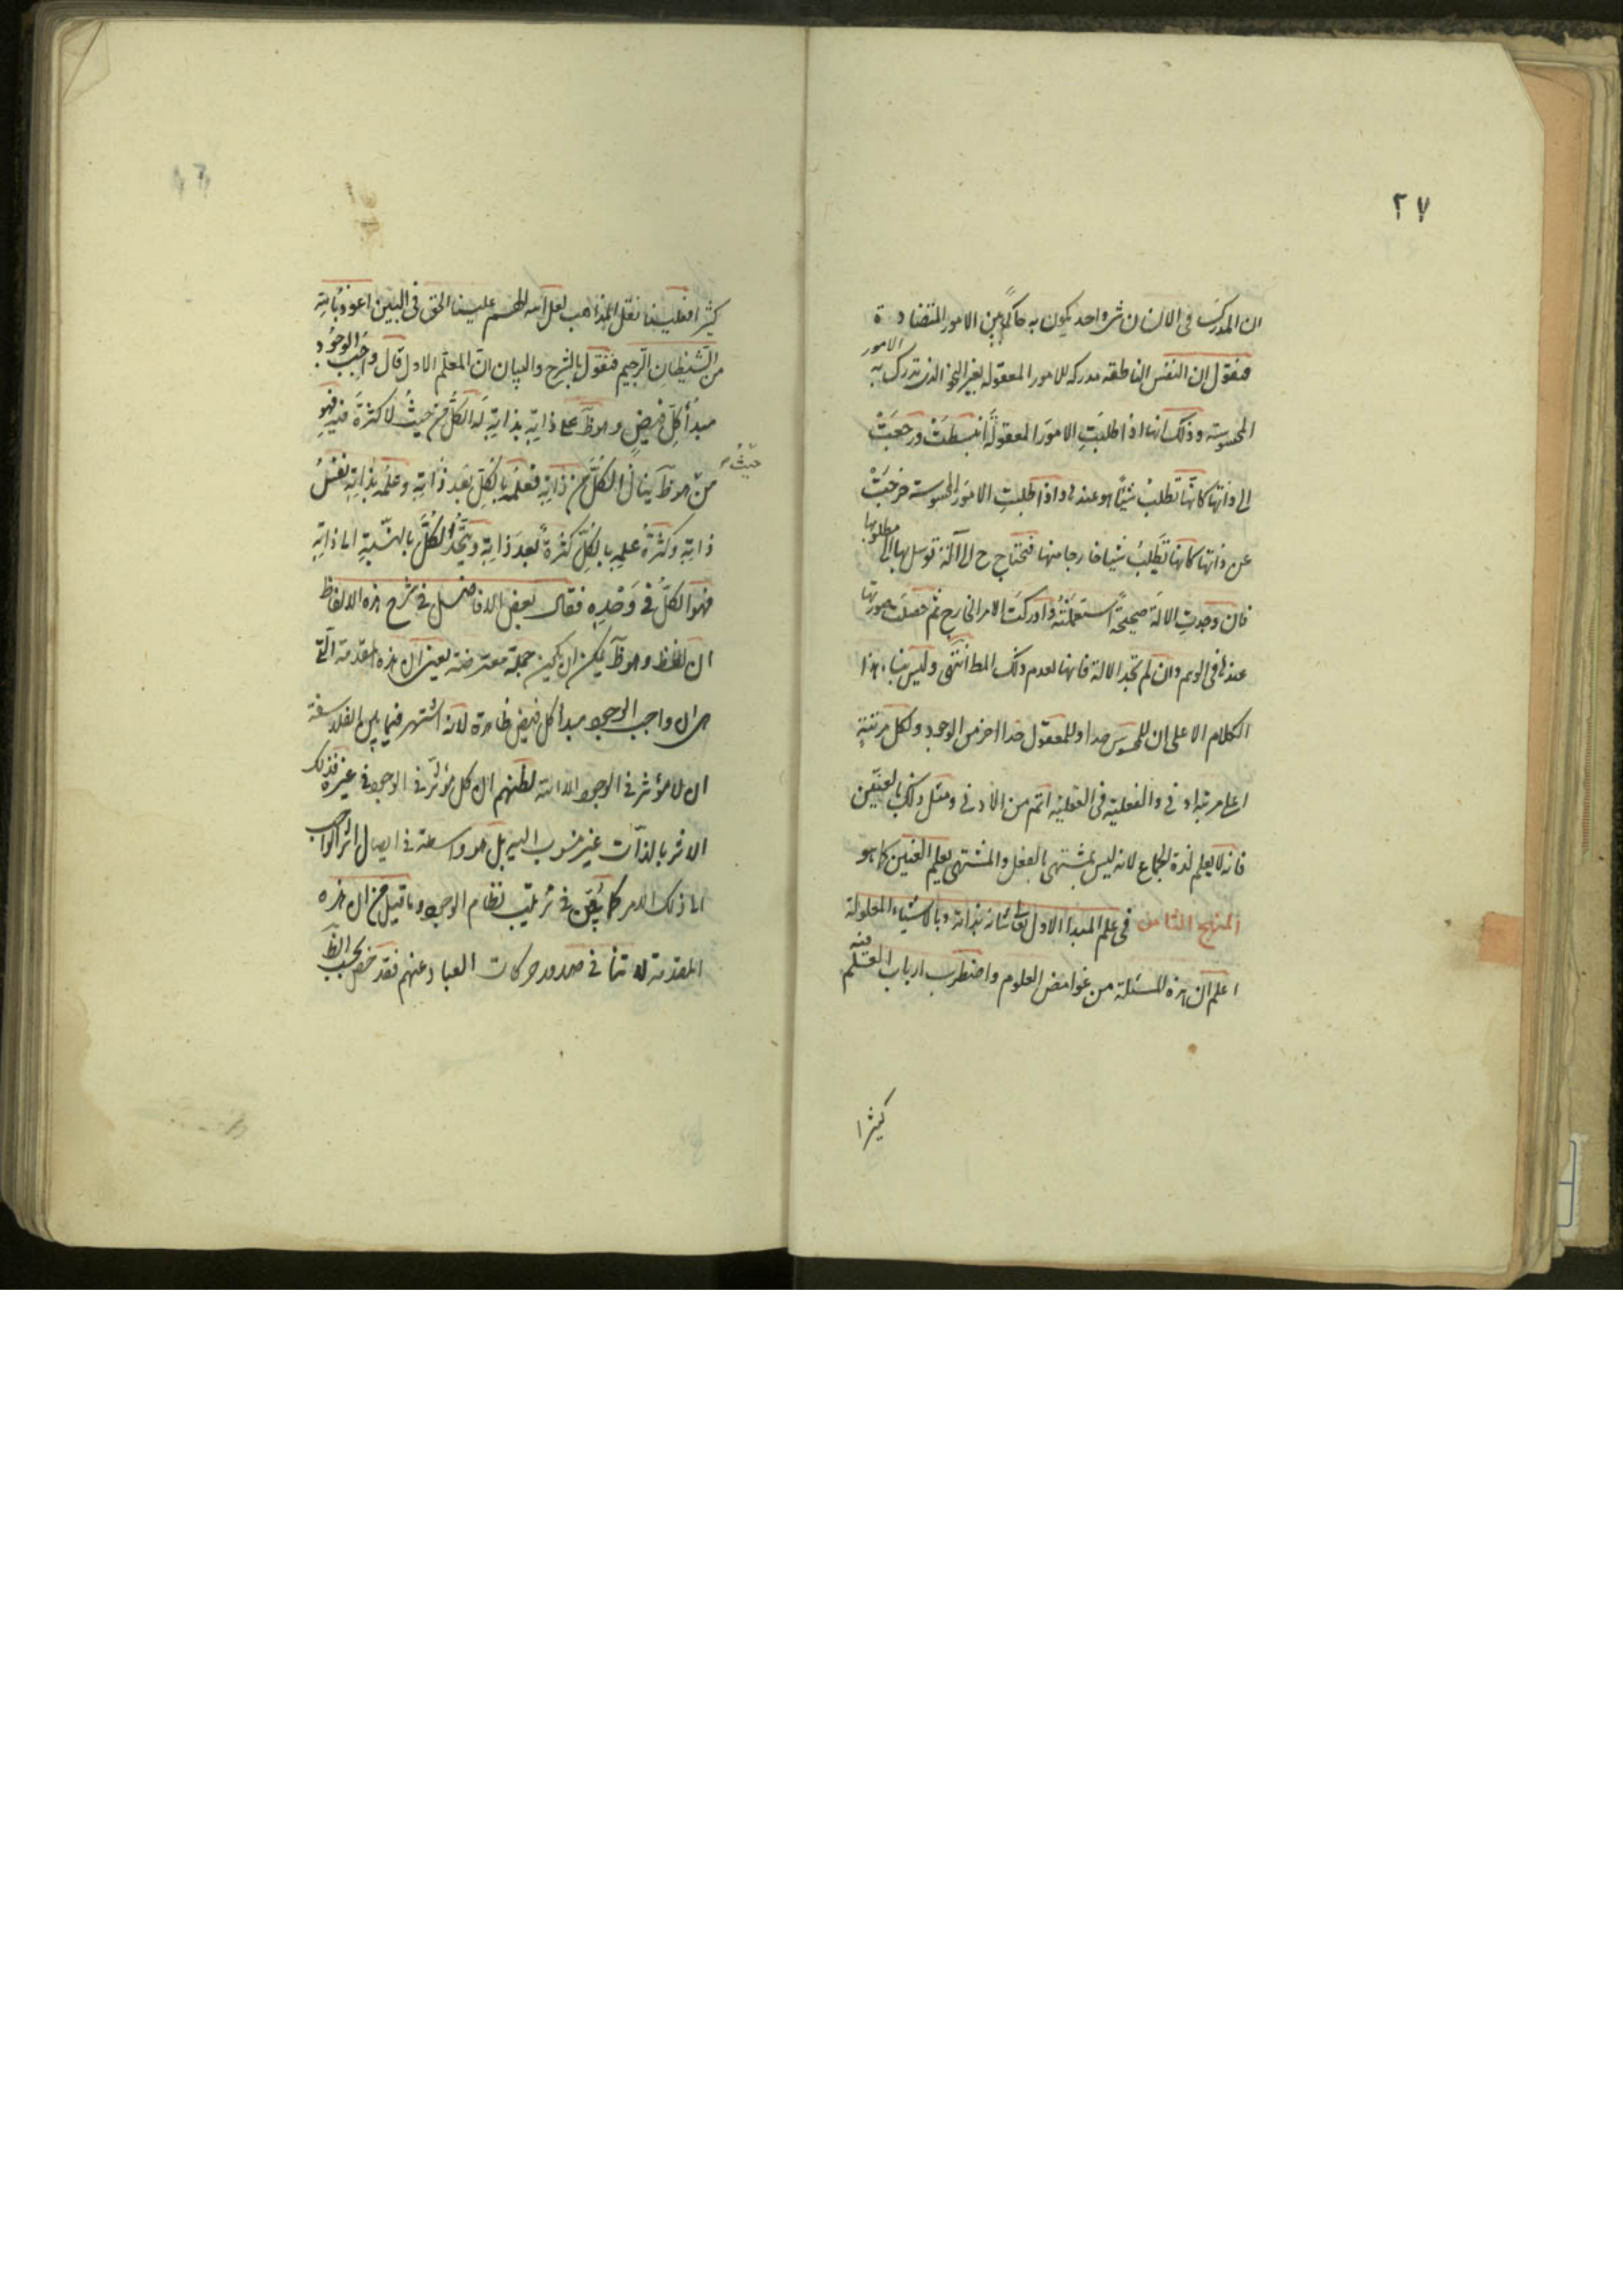 ٢٧
ان المدرك فى الانسان شئ واحد يكون به حاكمًا بين الامور المتضادة
فنقول ان النفس الناطقه مدركه للامور المعقوله بغير النحو الذى تدرك به الامور
المحسوسته وذلك انها اذا طلبَتِ الامورَ المعقولةَ انبسطَتْ ورجعَتْ
الى ذاتها كانّها تطلبُ شيئًا هو عندها واذا طلبتِ الامورَ المحسوسته خرجَتْ
عن ذاتها كانها تَطلبُ شيئا خارجا منها فتحتاج ح الى آلة توسل بها الى مطلوبها
فان وجدتِ الالَة صحيحةً استعملَتْهُ وادركَت الامر الخارج ثم حصلَت صورتها
عندها فى الوهم وان لم تجد الالة فانها لعدم ذلك المط انتفى وليس بناء هذا
الكلام الا على ان للمحسوس حدا وللمعقول حدا اخر من الوجود ولكل مرتبةٍ
اعلى مرتبه ادنى والفعليته فى العقليته اتم من الادنى ومثل ذلك بالعنّين
فانه لا يعلم لذة الجماع لانه ليس بمشتهى بالفعل والمشتهى يعلم العنين كما هو
المنهج الثامن فى علم المبدا الاول تعالى شانه بذاته وبالاشياء المعلولة
اعلم ان هذه المسئلة من غوامض العلوم واضطرب ارباب العلم فيه
كثيرا
كثيرا فعلينا نقل المذاهب لعل الله يلهم علينا الحق فى البين اعوذ باللهِ
من الشيطانِ الرّجيم فنقول بالشرح والبيان انّ المعلّم الاول قال واجبُ الوجُود
مبدُأ كلِّ فيضٍ وهو ظَ على ذاتِهِ بذاتِهِ لَه الكلُّ من حيثُ لا كثرَةَ فيهِ فهو
حيثُ
منْ هو ظَ ينالُ الكُلَّ من ذاتِهِ فعلمُه بالكلِّ بَعد ذَاتِهِ وعلمُه بذاتِهِ نفسُ
ذاتِهِ وكثرَةُ علمِهِ بالكلِّ كثرةً بَعدَ ذاتِهِ ويَتّحدُ الكُلُّ بالنسبةِ الى ذاتِهِ
فهوَ الكلُّ فى وَحْدِهِ فقال بعض الافاضل فى شرح هذه الالفاظ
ان لفظ وهو ظَ يمكن ان يكون جملة معترضة يعنى ان هذه المقدمة الّتى
هى ان واجب الوجود مبدأ كل فيض ظاهرة لانه اشتهر فيما بين الفلاسفة
ان لا مؤثر فى الوجود الا الله لظنهم ان كل مؤثر فى الوجود فى غيره فذلك
الاثر بالذات غير منسوب اليه بل هو واسطة فى ايصال اثر الواجب
الى ذلك الامر كما يُقق فى ترتيب نظام الوجود وما قيل من ان هذه
المقدمة لا تتأ فى صدور حركات العباد عنهم فقد خصّ بحسب الظَ